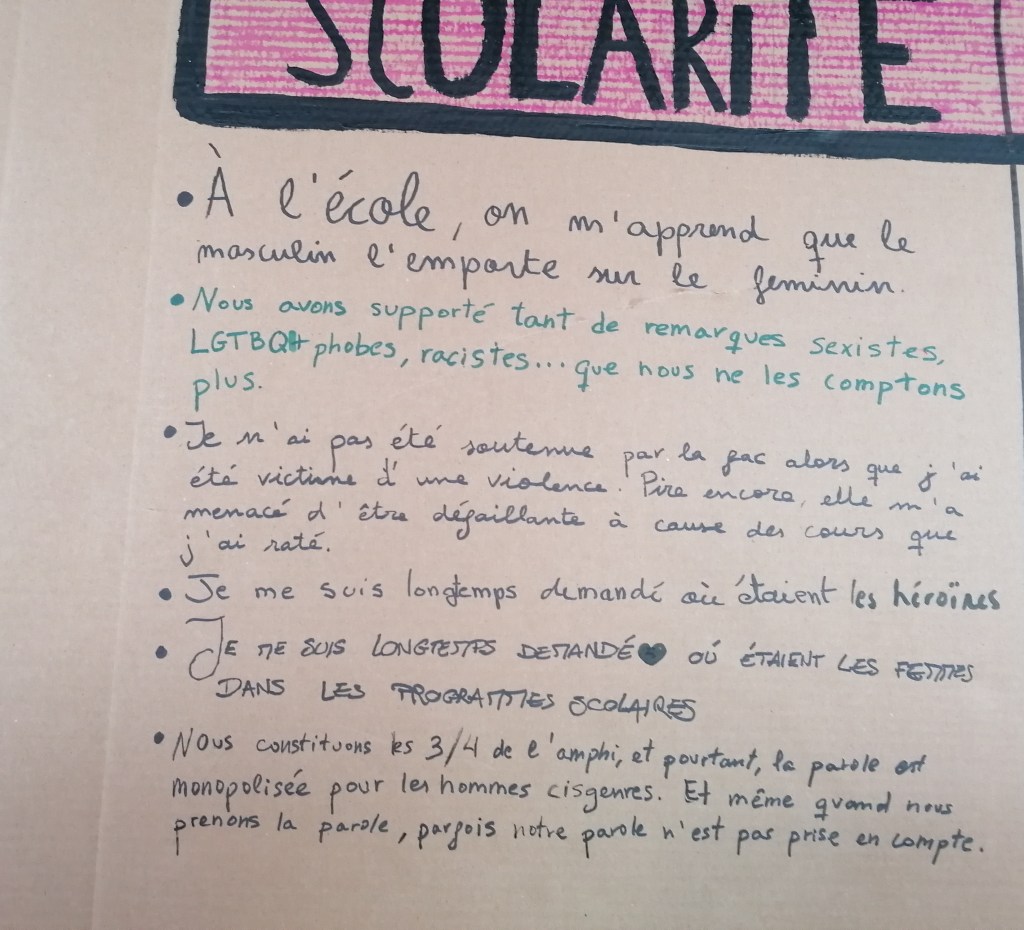 SCOLARITÉ
• À l'école, on m'apprend que le
masculin l'emporte sur le feminin.
• Nous avons supporté tant de remarques sexistes,
LGTBQ+ phobes, racistes... que nous ne les comptons
plus.
• Je n'ai pas été soutenue par la fac alors que j'ai
été victime d'une violence. Pire encore, elle m'a
menacé d'être défaillante à cause des cours que
j'ai raté.
• Je me suis longtemps demandé où étaient les héroïnes
• JE ME SUIS LONGTEMPS DEMANDÉ OÚ ÉTAIENT LES FEMMES
DANS LES PROGRAMMES SCOLAIRES
• Nous constituons les 3/4 de l'amphi, et pourtant, la parole est
monopolisée pour les hommes cisgenres. Et même quand nous
prenons la parole, parfois notre parole n'est pas prise en compte.